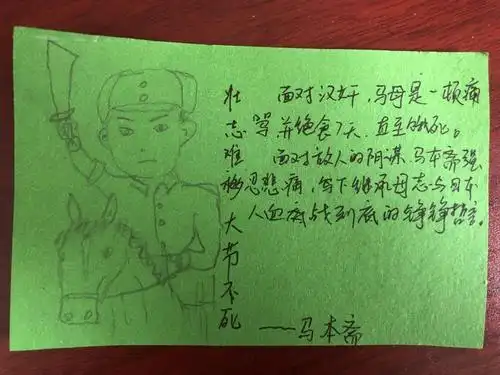 壮志难移 大节不死
面对汉奸，马母是一顿痛
骂并绝食7天，直至饿死。
面对敌人的阴谋，马本斋强
忍悲痛，写下继承母志与日本
人血底战到底的铮铮哲言。
——马本斋